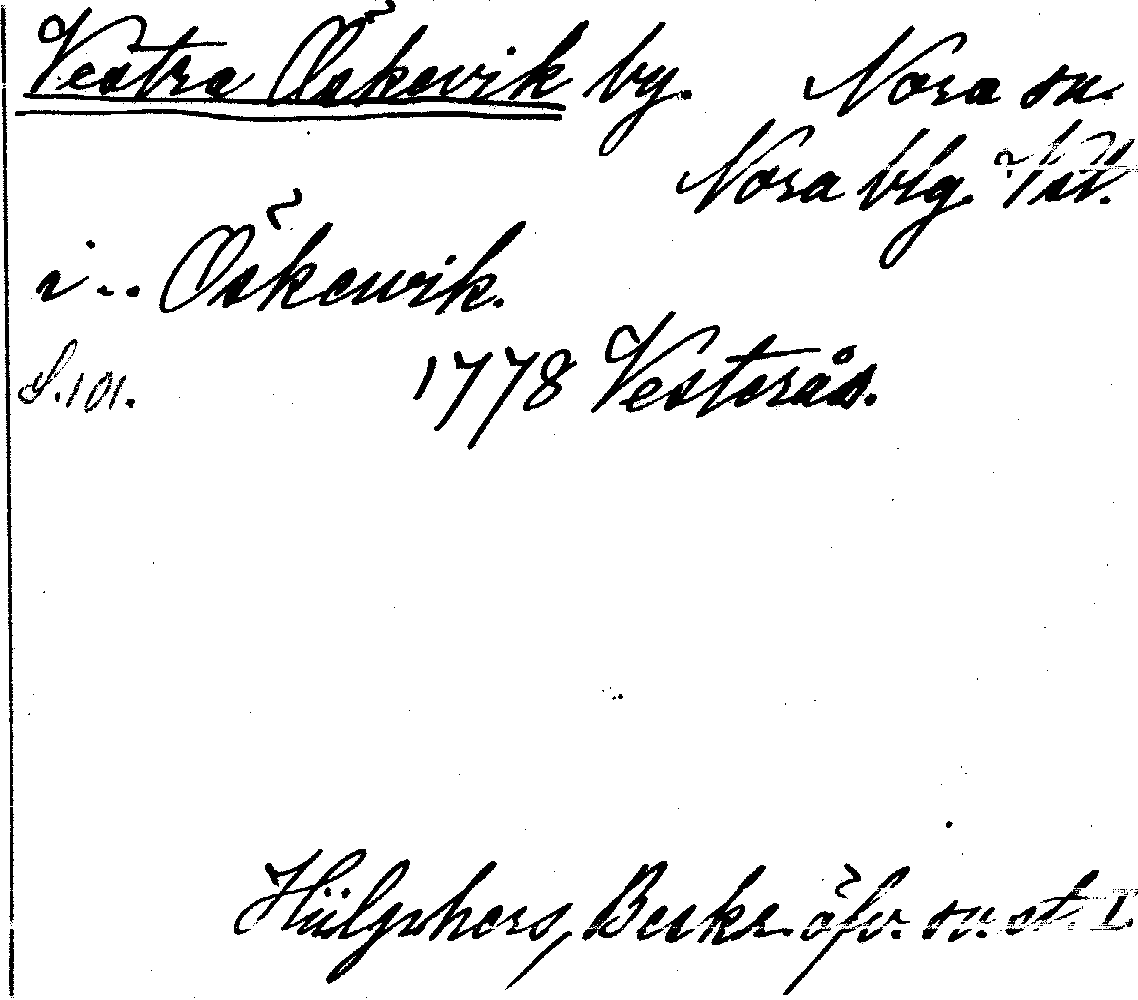 Vestra Öskevik by. Nora sn.
Nora blg. Vstl.
i .. Öskewik.
S. 101. 1778 Vesterås.
Hülphers, Beskr. öfv. sv. st. I.